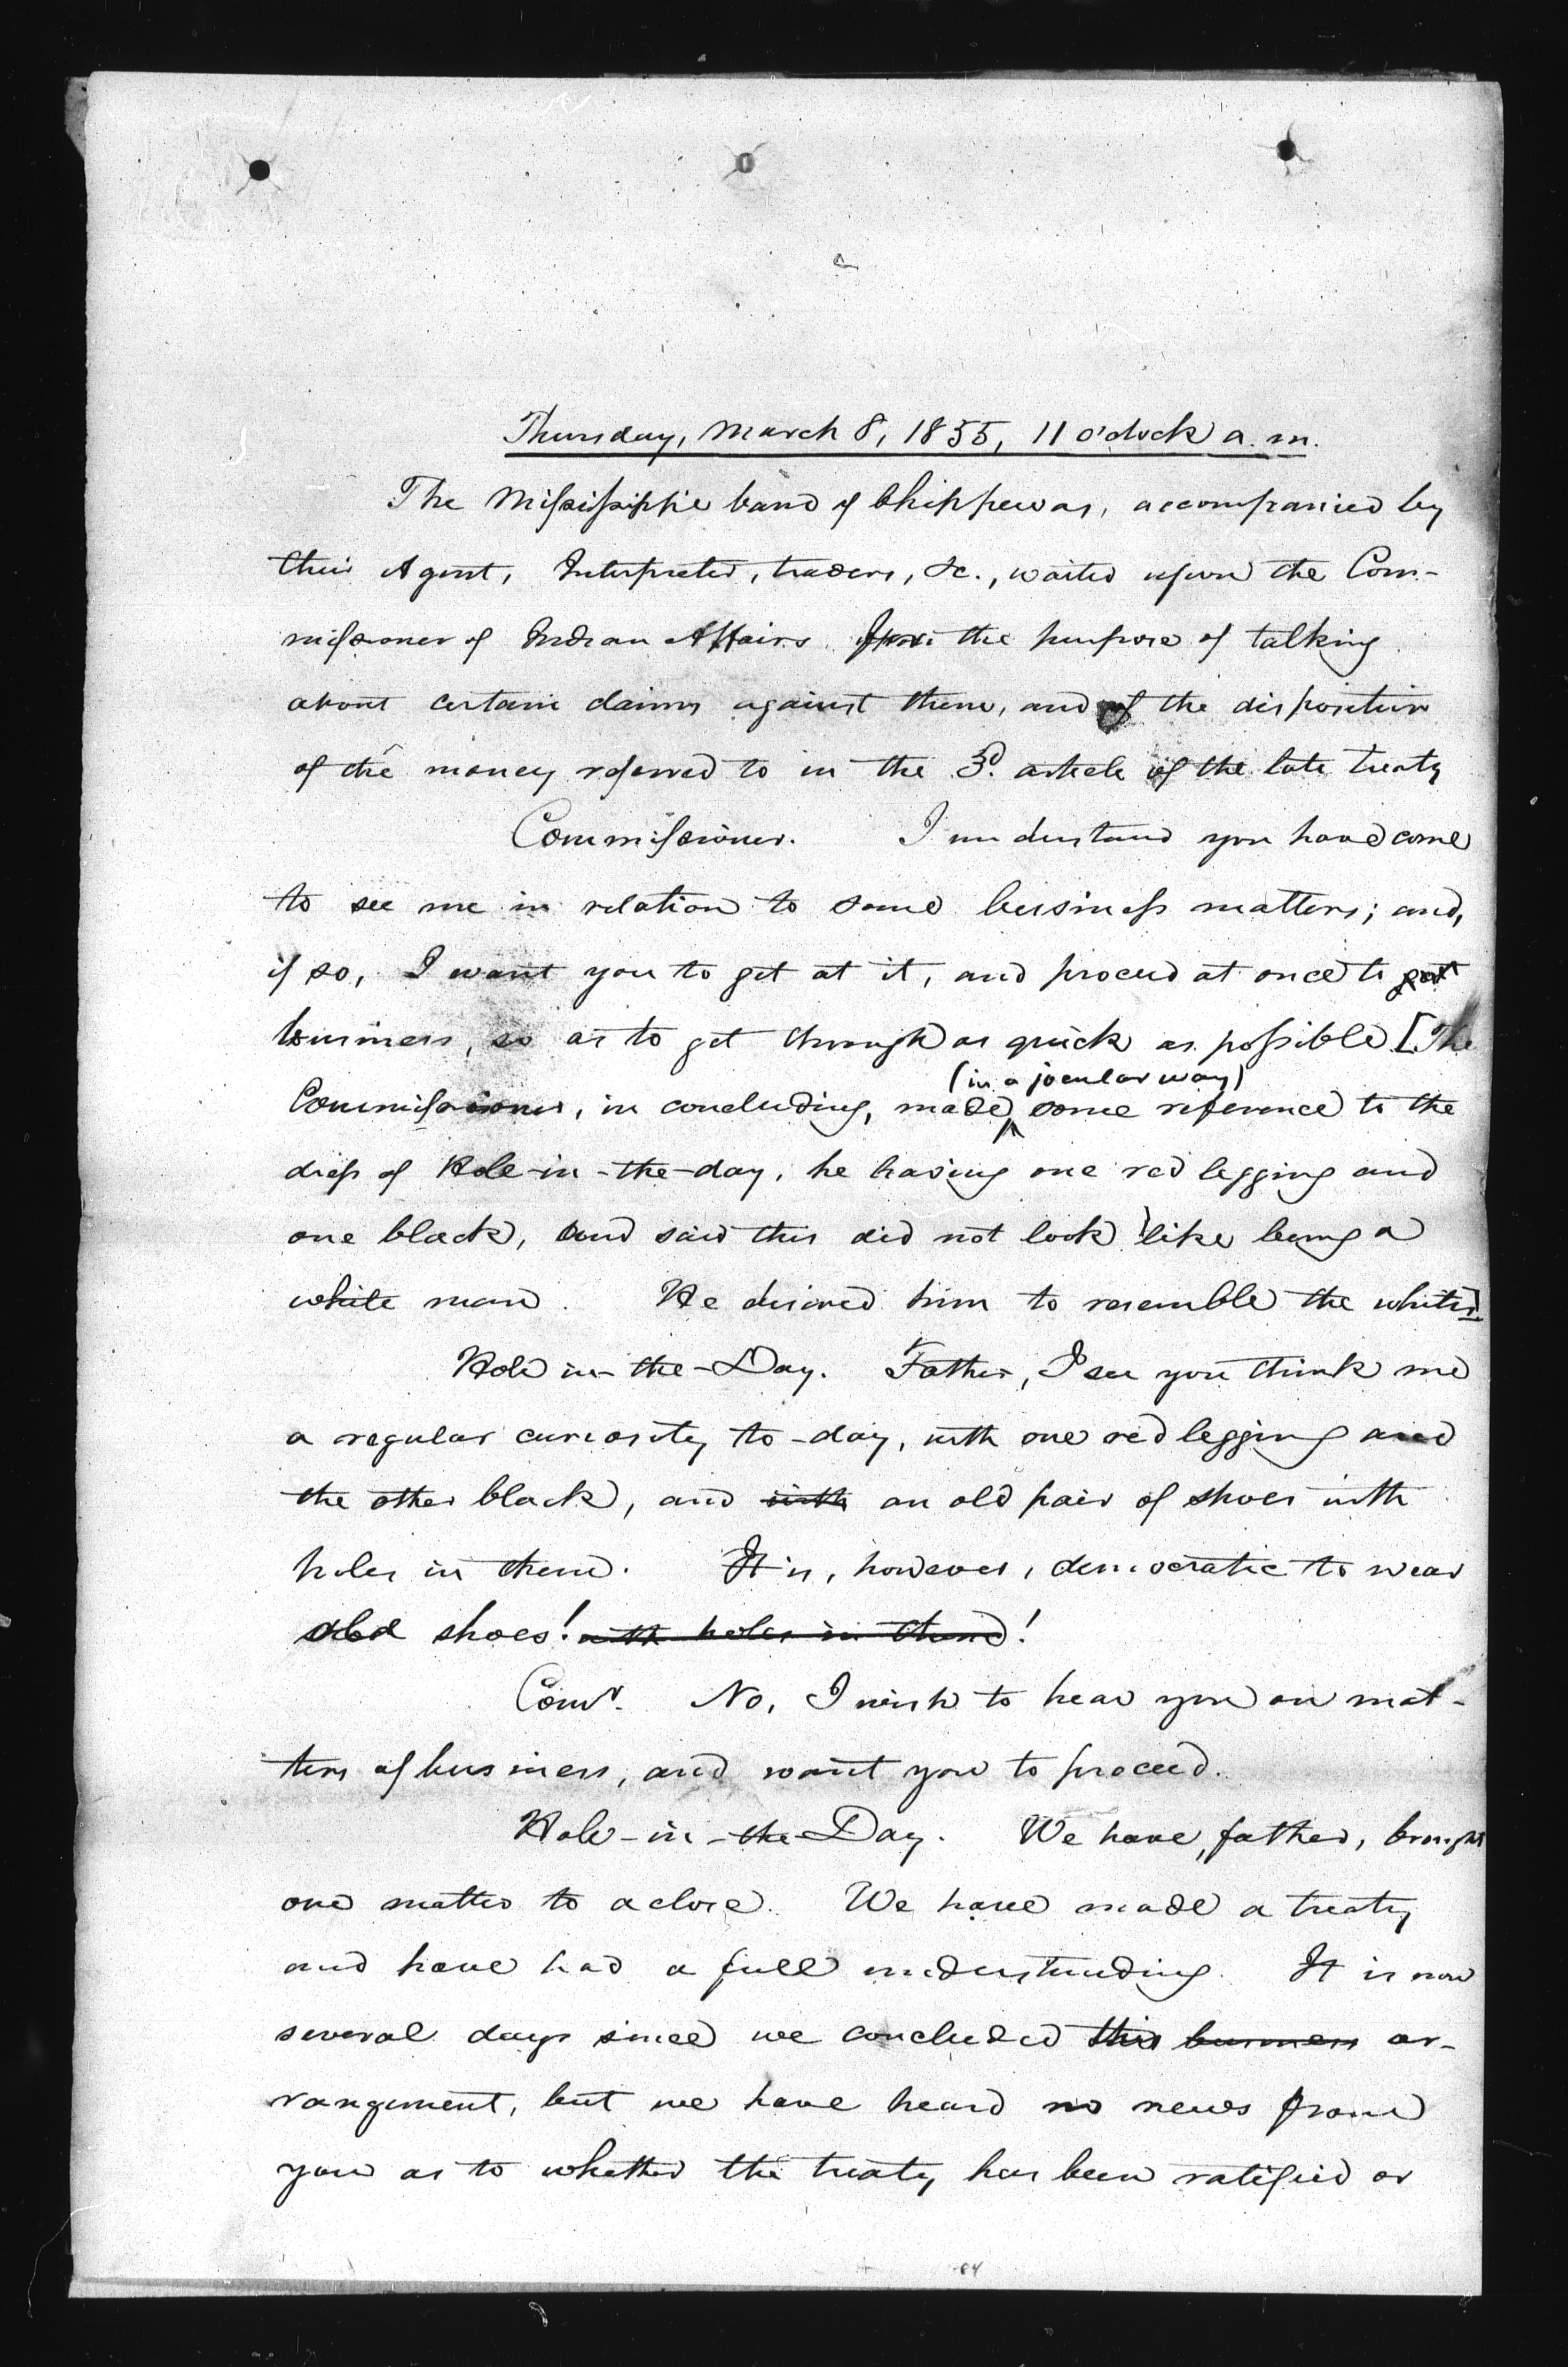 Thursday, March 8, 1855, 11 o'clock a.m.
The Missisippie band of Chippewas, accompanied by
their Agent, Interpreter, traders, &c., waited upon the Com-
missioner of Indian Affairs for the purpose of talking
about certain claims against them, and of the disposition
of the money referred to in the 3d. article of the late treaty
Commissioner. I understand you have come
to see me in relation to some business matters; and,
if so, I want you to get at it, and proceed at once to
business, so as to get through as quick as possible [The
(in a jocular way)
Commissioner, in concluding, made some reference to the
dress of Hole-in-the-day, he having one red legging and
one black, and said this did not look like being a
white man. He desired him to resemble the whites]
Hole in-the-Day. Father, I see you think me
a regular curiosity to-day, with one red legging and
the other black, and with an old pair of shoes with
holes in them. It is, however, democratic to wear
old shoes! with holes in them!
Comr. No, I wish to hear you on mat-
ters of business, and want you to proceed.
Hole-in-the-Day. We have, father, brought
one matter to a close. We have made a treaty
and have had a full understanding. It is now
several days since we concluded this business ar-
rangement, but we have heard no news from
you as to whether the treaty has been ratified or
84